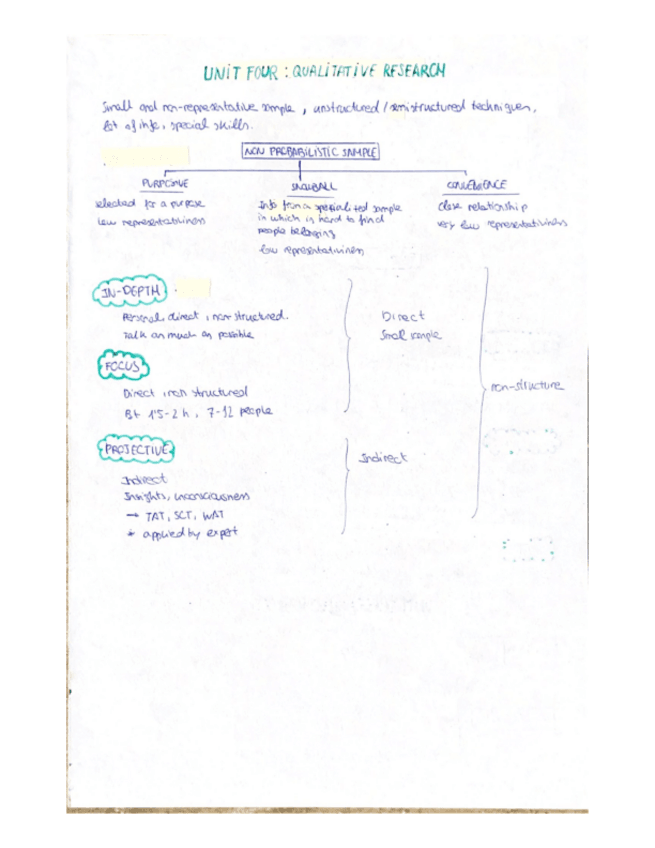 UNIT FOUR : QUALITATIVE RESEARCH
Small and non-representative sample, unstructured / semistructured techniques,
lot of info, special skills.
NON PROBABILISTIC SAMPLE
PURPOSIVE
SNOWBALL
CONVENIENCE
selected for a purpose
low representativiness
Info from a specialized sample
in which is hard to find
people belonging
low representativiness
Close relationship
very low representativiness
IN-DEPTH
Personal, direct, non structured.
Talk as much as possible
FOCUS
Direct, non structured
Bt 1'5-2 h, 7-12 people
Direct
Small sample
non-structure
PROJECTIVE
Indirect
Insights, unconsciousness
→ TAT, SCT, WAT
* applied by expert
Indirect